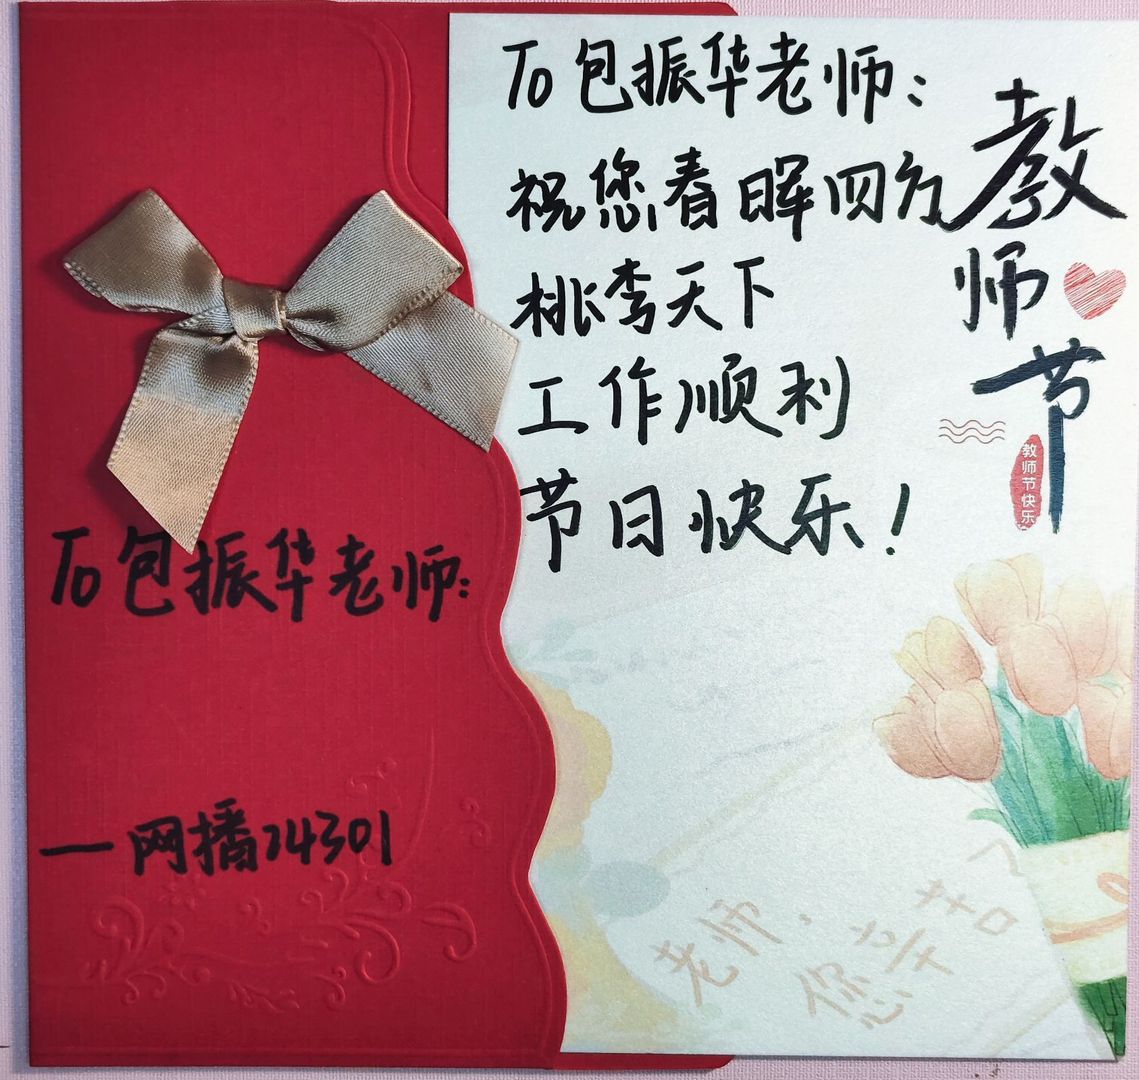 To 包振华老师:
—网播24301
To 包振华老师:
祝您春晖四方
桃李天下
工作顺利
节日快乐!
教师节
教师节快乐
老师,您辛苦了